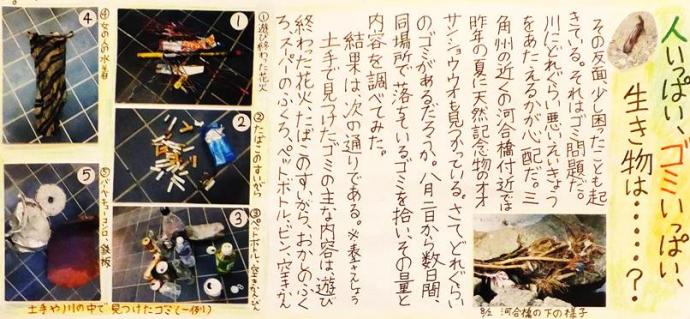 人いっぱい、ゴミいっぱい、
生き物は・・・・・?
その反面、少し困ったことも起
きている。それはゴミ問題だ。
川にどれぐらい悪いえいきょう
をあたえるかが心配だ。三
角州の近くの河合橋付近では
昨年の夏に天然記念物のオオ
サンショウウオも見つかっている。さて、どれぐらい
のゴミがあるだろうか。八月二日から数日間、
同場所で落ちているゴミを拾い、その量と
内容を調べてみた。
結果は、次の通りである。※表さんしょう
土手で見つけたゴミの主な内容は、遊び
終わった花火、たばこのすいがら、おかしのふく
ろ、スーパーのふくろ、ペットボトル、ビン、空きかん
8/2 河合橋の下の様子
①遊び終わった花火
①
②たばこのすいがら
②
③ペットボトル・空きかん・びん
③
④女の人の水着
④
⑤バーベキューコンロ・鉄板
⑤
土手や川の中で見つけたゴミ(一例)